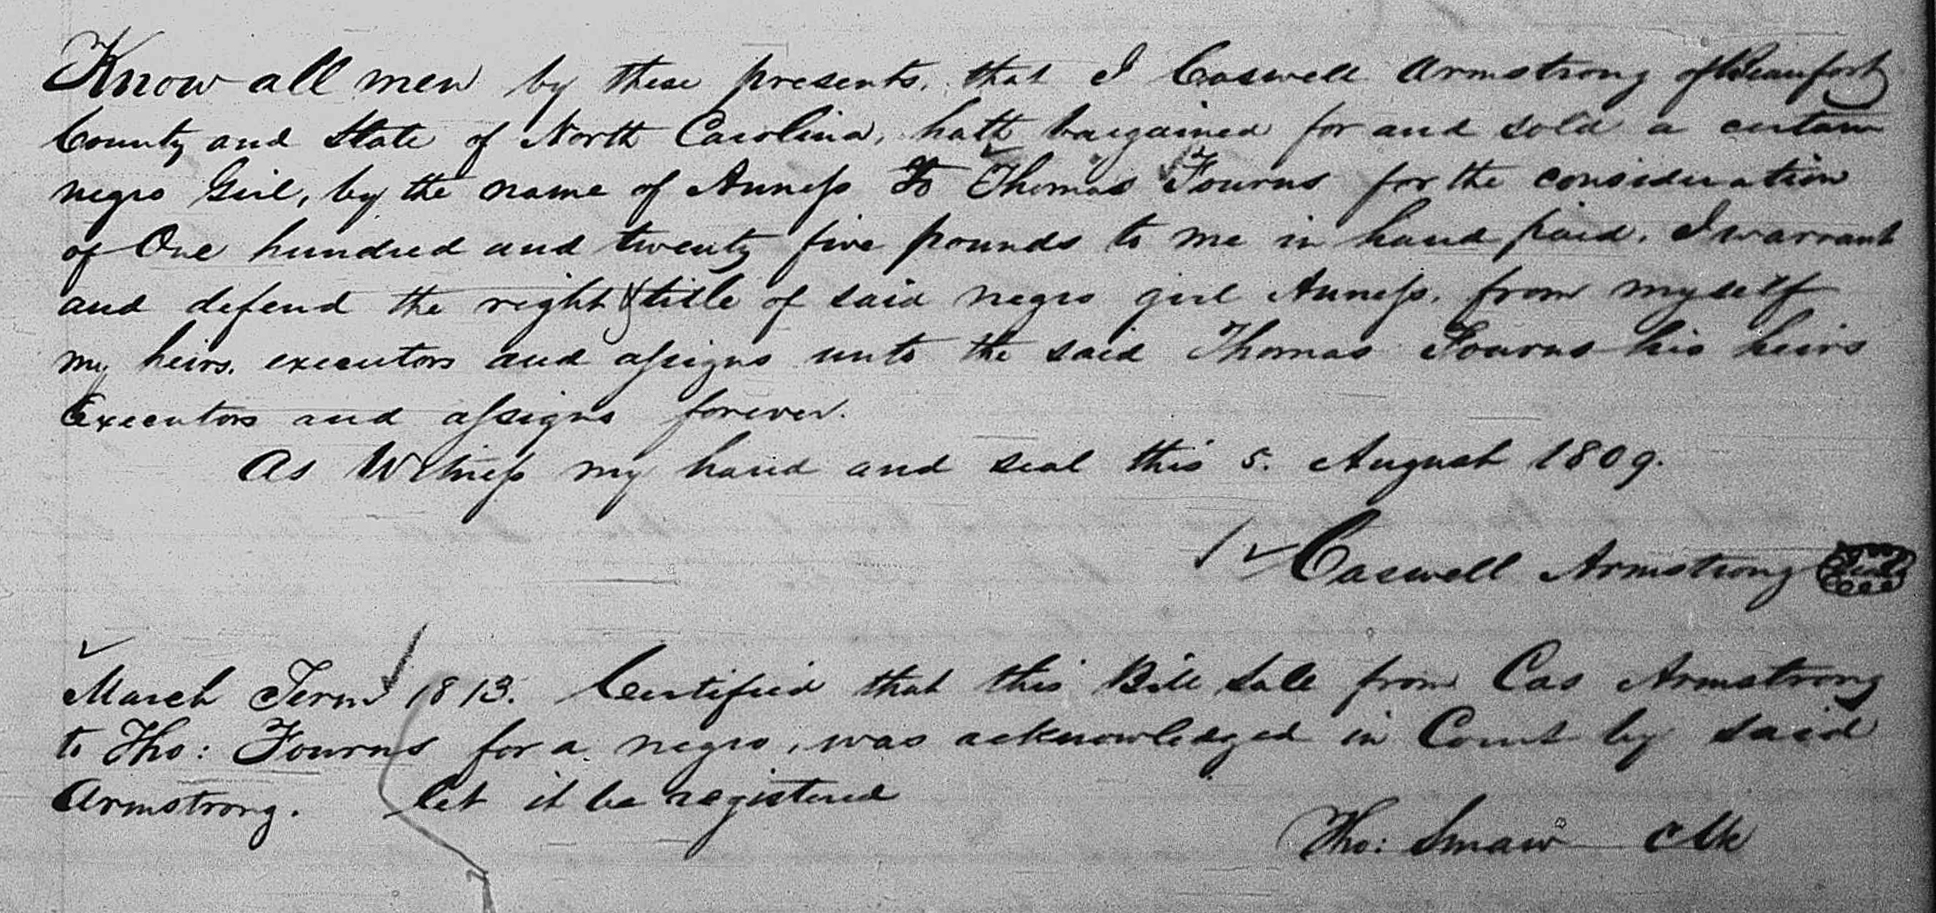 Know all men by these presents, that I Caswell Armstrong of Beaufort
County and State of North Carolina, hath bargained for and sold a certain
negro Girl, by the name of Anness To Thomas Fourns for the consideration
of One hundred and twenty five pounds to me in hand paid. I warrant
and defend the right & title of said negro girl Anness, from myself
my heirs, executors and assigns unto the said Thomas Fourns his heirs
Executors and assigns forever.
As Witness my hand and seal this 5. August 1809.
Caswell Armstrong Seal
March Term 1813. Certified that this Bill Sale from Cas Armstrong
to Tho: Fourns for a negro, was acknowledged in Court by said
Armstrong. Let it be registered
Tho: Smaw Clk